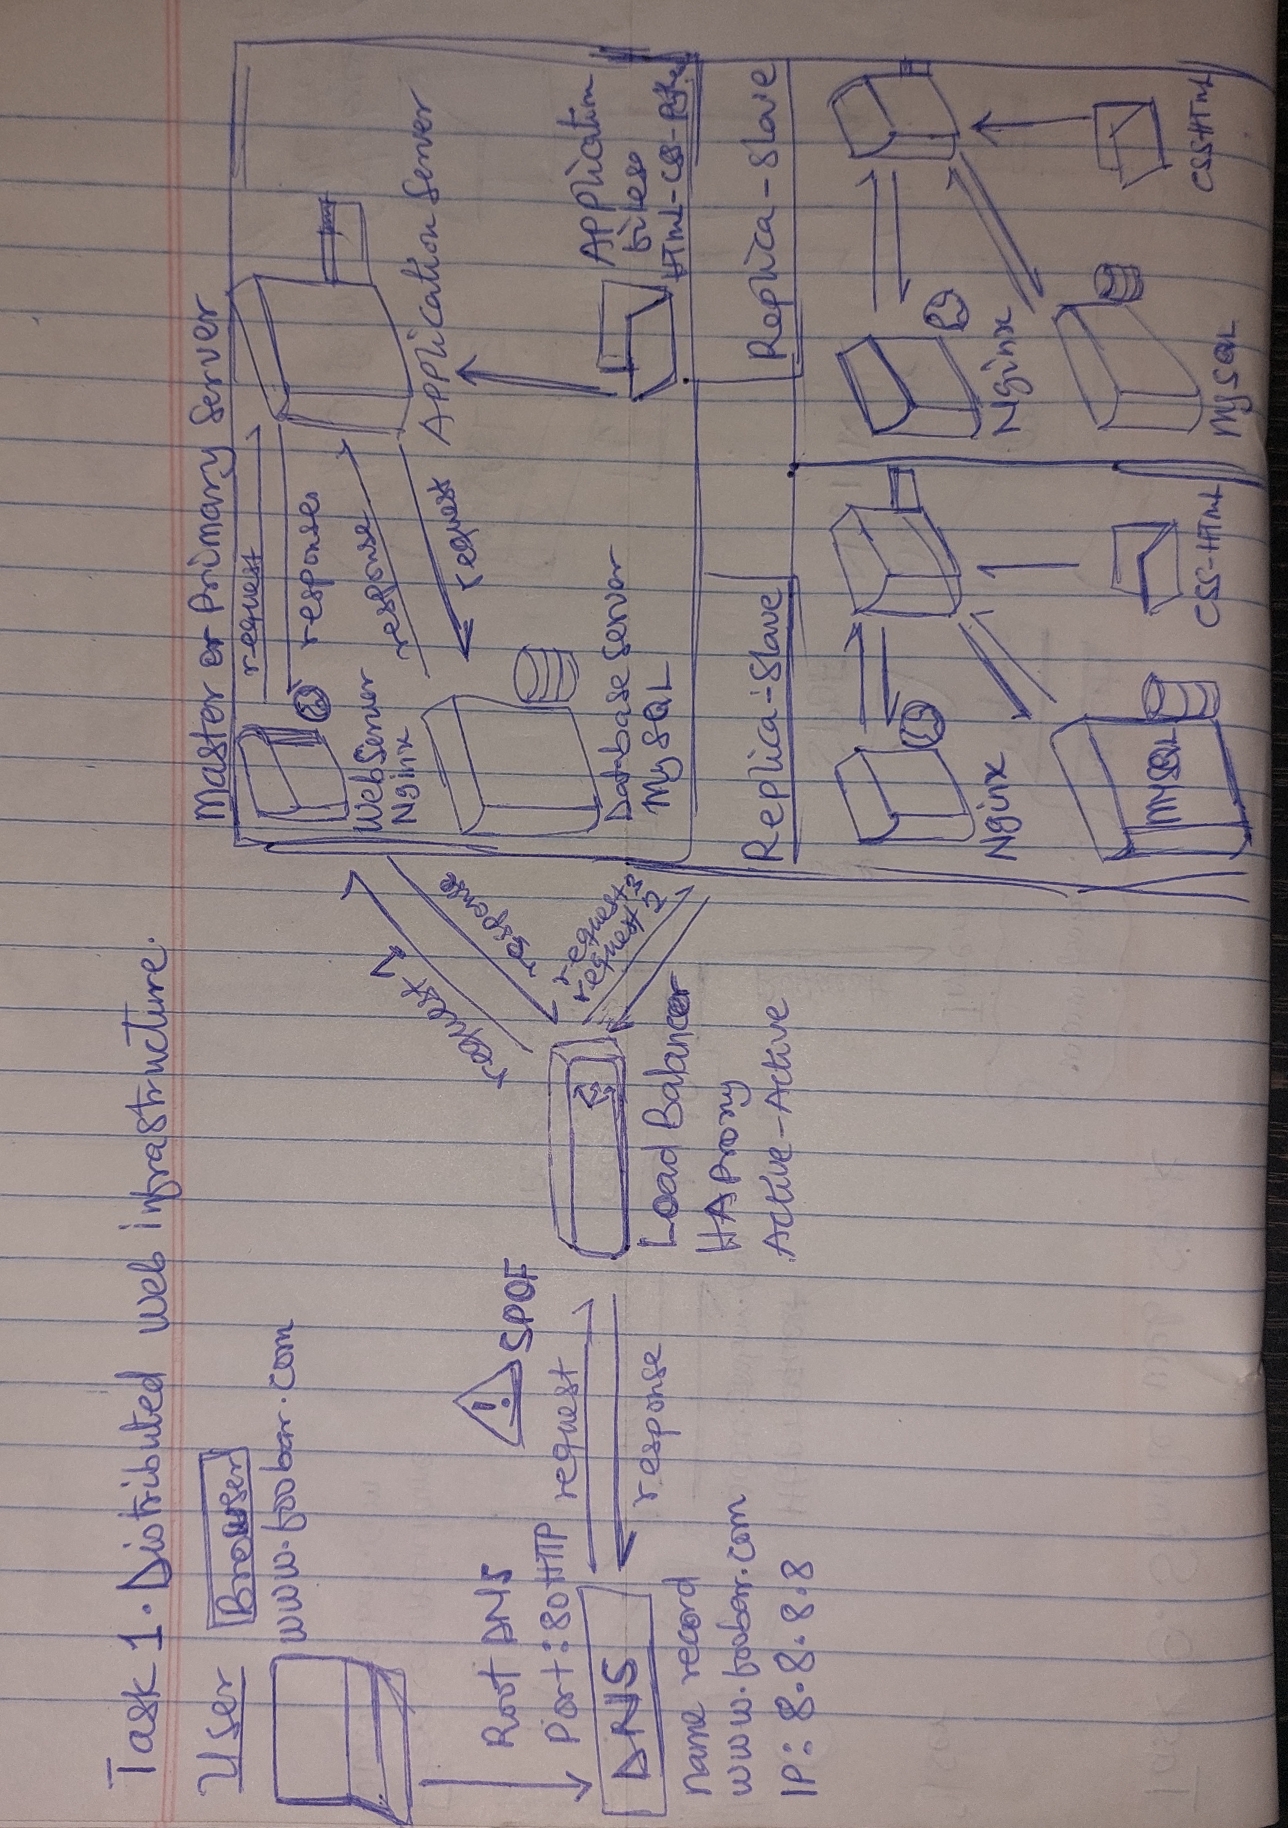 Task 1. Distributed web infrastructure.
User
Browser
www.foobar.com
Root DNS
Port:80 HTTP
DNS
name record
www.foobar.com
IP: 8.8.8.8
SPOF
request
response
Load Balancer
HAProxy
Active-Active
request 1
response
request 3
request 2
Master or Primary Server
request
response
response
request
Web Server
Nginx
Application Server
Database Server
MySQL
Application
files
Html-css-
Replica-Slave
Nginx
MySQL
CSS-HTML
Replica-Slave
Nginx
MySQL
CSSHTML